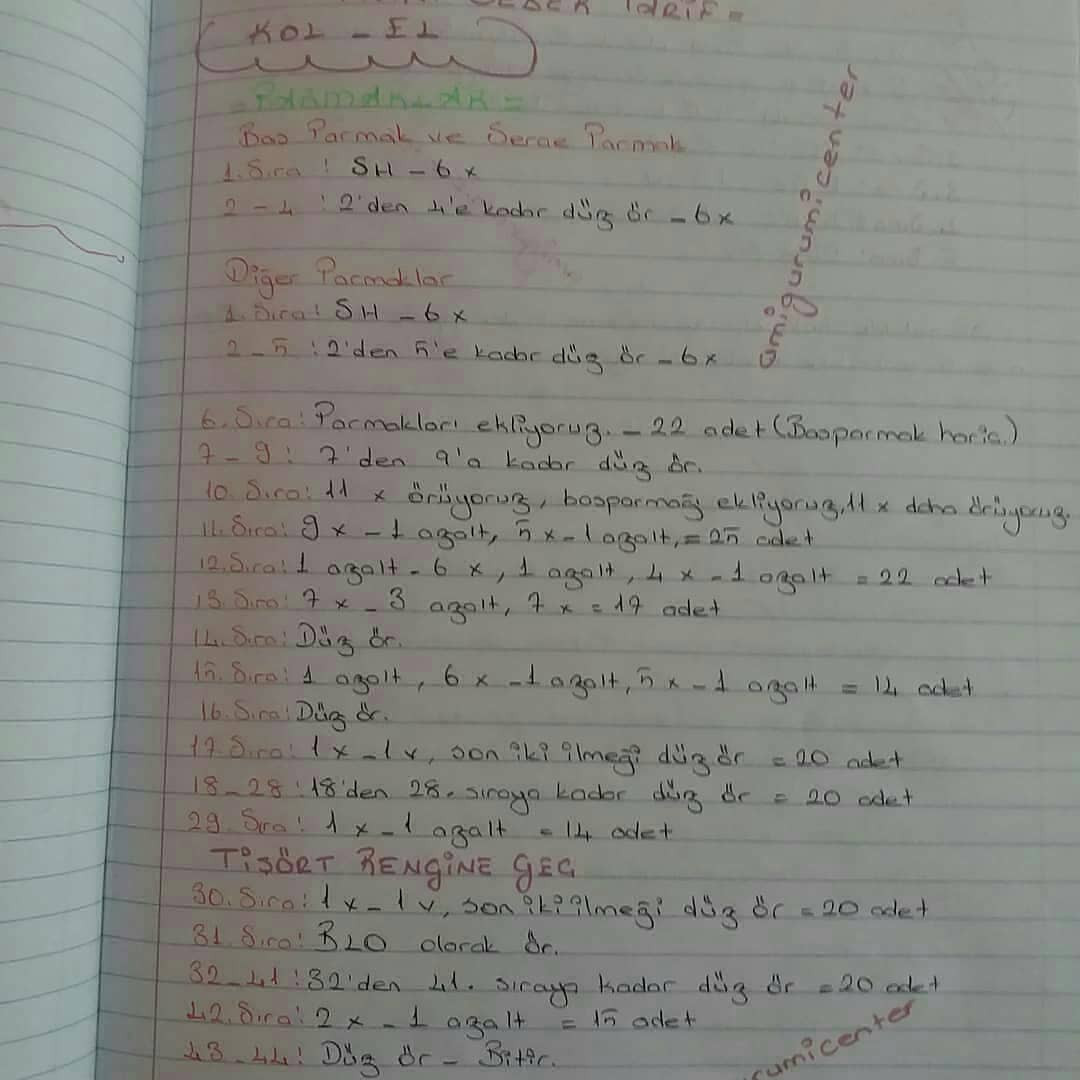 KOL - EL
PARMAKLAR =
Baş Parmak ve Serçe Parmak
1. Sıra : SH - 6 x
2 - 4 : 2'den 4'e kadar düz ör - 6x
Diğer Parmaklar
1. Sıra : SH - 6 x
2 - 5 : 2'den 5'e kadar düz ör - 6x
6. Sıra : Parmakları ekliyoruz. - 22 adet (Başparmak hariç.)
7 - 9 : 7'den 9'a kadar düz ör.
10. Sıra : 11 x örüyoruz, başparmağı ekliyoruz, 11 x daha örüyoruz.
11. Sıra : 9 x - 1 azalt, 5 x - 1 azalt, = 25 adet
12. Sıra : 1 azalt - 6 x, 1 azalt, 4 x - 1 azalt = 22 adet
13. Sıra : 7 x - 3 azalt, 7 x = 17 adet
14. Sıra : Düz ör.
15. Sıra : 1 azalt, 6 x - 1 azalt, 5 x - 1 azalt = 14 adet
16. Sıra : Düz ör.
17. Sıra : 1 x - 1 v, son iki ilmeği düz ör = 20 adet
18 - 28 : 18'den 28. sıraya kadar düz ör = 20 adet
29. Sıra : 1 x - 1 azalt = 14 adet
TİŞÖRT RENGİNE GEÇ
30. Sıra : 1 x - 1 v, son iki ilmeği düz ör = 20 adet
31. Sıra : BLO olarak ör.
32 - 41 : 32'den 41. sıraya kadar düz ör = 20 adet
42. Sıra : 2 x - 1 azalt = 15 adet
43 - 44 : Düz ör - Bitir.
amigurumicenter
rumicenter